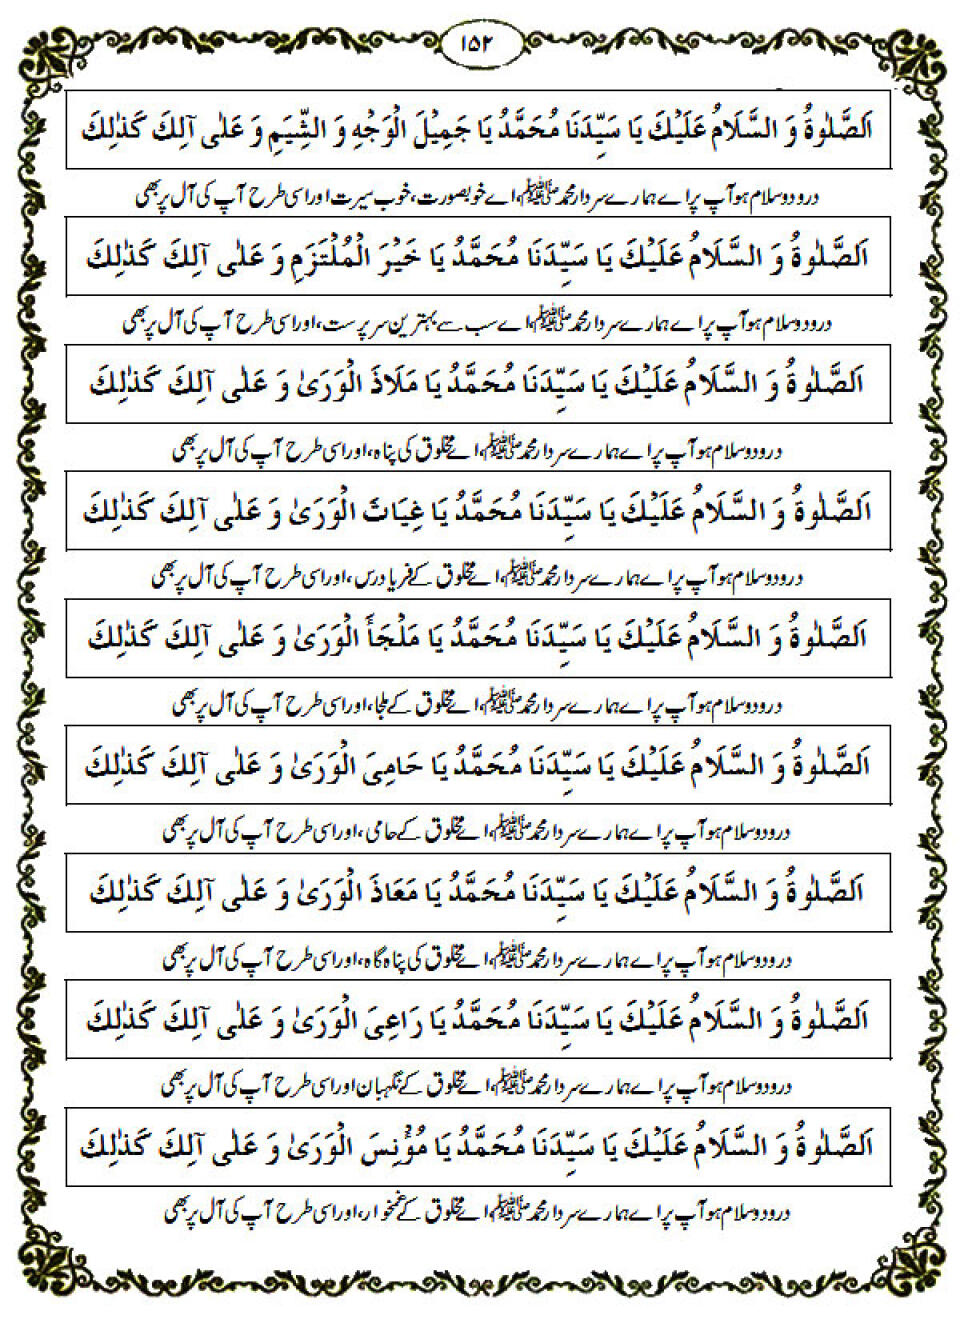 ۱۵۲
اَلصَّلٰوةُ وَ السَّلَامُ عَلَيْكَ يَا سَيِّدَنَا مُحَمَّدُ يَا جَمِيْلَ الْوَجْهِ وَ الشِّيَمِ وَ عَلٰى آلِكَ كَذٰلِكَ
درود و سلام ہو آپ پر اے ہمارے سردار محمد ﷺ، اے خوبصورت، خوب سیرت اور اسی طرح آپ کی آل پر بھی
اَلصَّلٰوةُ وَ السَّلَامُ عَلَيْكَ يَا سَيِّدَنَا مُحَمَّدُ يَا خَيْرَ الْمُلْتَزَمِ وَ عَلٰى آلِكَ كَذٰلِكَ
درود و سلام ہو آپ پر اے ہمارے سردار محمد ﷺ، اے سب سے بہترین سرپرست، اور اسی طرح آپ کی آل پر بھی
اَلصَّلٰوةُ وَ السَّلَامُ عَلَيْكَ يَا سَيِّدَنَا مُحَمَّدُ يَا مَلَاذَ الْوَرَىٰ وَ عَلٰى آلِكَ كَذٰلِكَ
درود و سلام ہو آپ پر اے ہمارے سردار محمد ﷺ، اے مخلوق کی پناہ، اور اسی طرح آپ کی آل پر بھی
اَلصَّلٰوةُ وَ السَّلَامُ عَلَيْكَ يَا سَيِّدَنَا مُحَمَّدُ يَا غِيَاثَ الْوَرَىٰ وَ عَلٰى آلِكَ كَذٰلِكَ
درود و سلام ہو آپ پر اے ہمارے سردار محمد ﷺ، اے مخلوق کے فریادرس، اور اسی طرح آپ کی آل پر بھی
اَلصَّلٰوةُ وَ السَّلَامُ عَلَيْكَ يَا سَيِّدَنَا مُحَمَّدُ يَا مَلْجَأَ الْوَرَىٰ وَ عَلٰى آلِكَ كَذٰلِكَ
درود و سلام ہو آپ پر اے ہمارے سردار محمد ﷺ، اے مخلوق کے ملجا، اور اسی طرح آپ کی آل پر بھی
اَلصَّلٰوةُ وَ السَّلَامُ عَلَيْكَ يَا سَيِّدَنَا مُحَمَّدُ يَا حَامِىَ الْوَرَىٰ وَ عَلٰى آلِكَ كَذٰلِكَ
درود و سلام ہو آپ پر اے ہمارے سردار محمد ﷺ، اے مخلوق کے حامی، اور اسی طرح آپ کی آل پر بھی
اَلصَّلٰوةُ وَ السَّلَامُ عَلَيْكَ يَا سَيِّدَنَا مُحَمَّدُ يَا مَعَاذَ الْوَرَىٰ وَ عَلٰى آلِكَ كَذٰلِكَ
درود و سلام ہو آپ پر اے ہمارے سردار محمد ﷺ، اے مخلوق کی پناہ گاہ، اور اسی طرح آپ کی آل پر بھی
اَلصَّلٰوةُ وَ السَّلَامُ عَلَيْكَ يَا سَيِّدَنَا مُحَمَّدُ يَا رَاعِىَ الْوَرَىٰ وَ عَلٰى آلِكَ كَذٰلِكَ
درود و سلام ہو آپ پر اے ہمارے سردار محمد ﷺ، اے مخلوق کے نگہبان اور اسی طرح آپ کی آل پر بھی
اَلصَّلٰوةُ وَ السَّلَامُ عَلَيْكَ يَا سَيِّدَنَا مُحَمَّدُ يَا مُؤْنِسَ الْوَرَىٰ وَ عَلٰى آلِكَ كَذٰلِكَ
درود و سلام ہو آپ پر اے ہمارے سردار محمد ﷺ، اے مخلوق کے غمخوار، اور اسی طرح آپ کی آل پر بھی